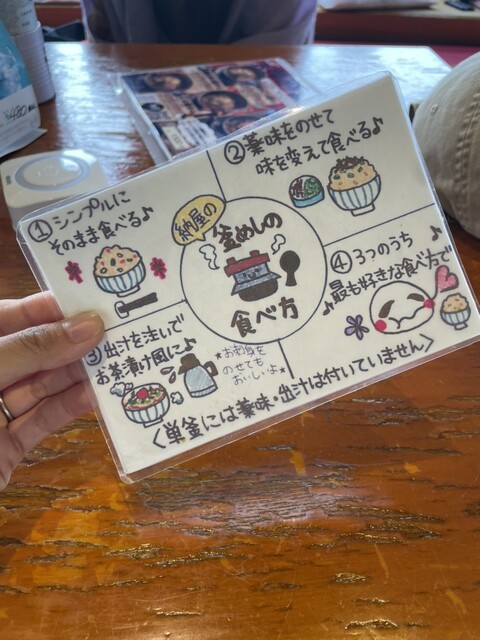 納屋の
釜めしの
食べ方
①シンプルに
そのまま食べる♪
②薬味をのせて
味を変えて食べる♪
③出汁を注いで
お茶漬け風に♪
★お刺身を
のせても
おいしいよ★
④3つのうち
♪最も好きな食べ方で♪
<単釜には薬味・出汁は付いていません>